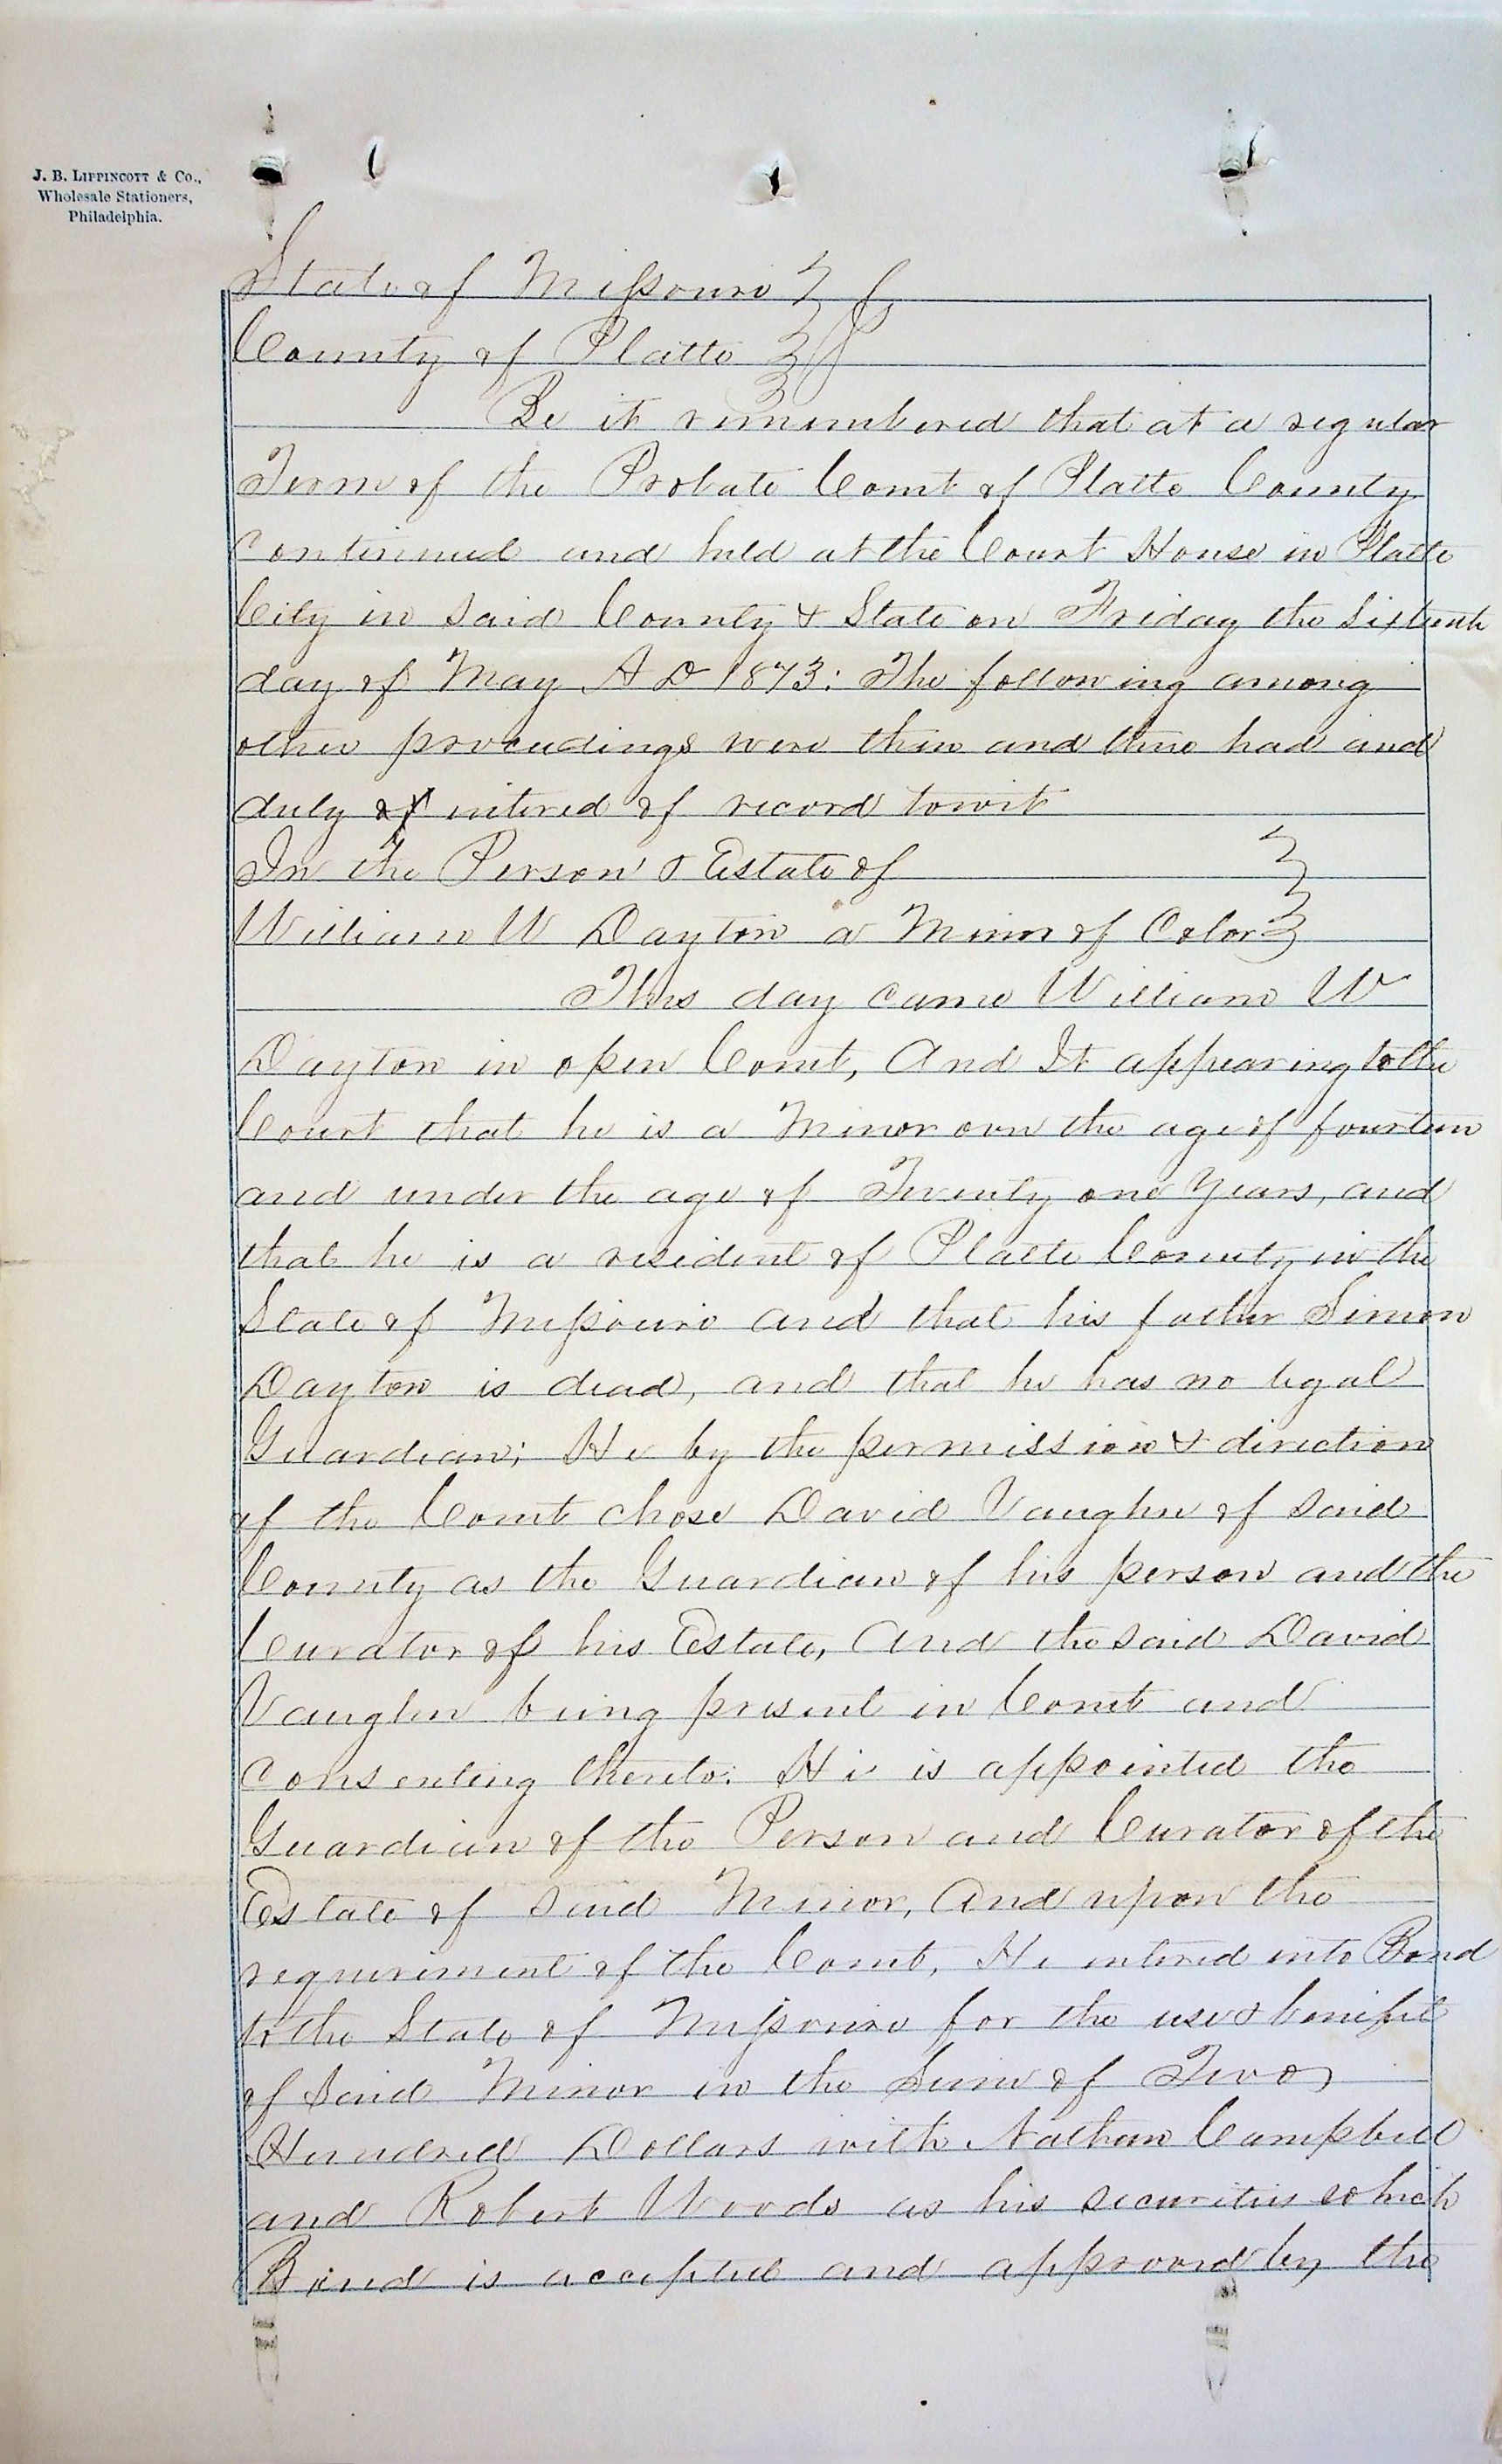 J. B. LIPPINCOTT & Co.,
Wholesale Stationers,
Philadelphia.
State of Missouri } ss
County of Platte }
Be it remembered that at a regular
Term of the Probate Court of Platte County
continued and held at the Court House in Platte
City in Said County & State on Friday the Sixteenth
day of May A D 1873: The following among
other proceedings were then and there had and
duly entered of record towit
In the Person & Estate of }
William W Dayton a Minor of Color }
This day came William W
Dayton in open Court, And It appearing to the
Court that he is a Minor over the age of fourteen
and under the age of Twenty one Years, and
that he is a resident of Platte County in the
State of Missouri and that his father Simon
Dayton is dead, and that he has no legal
Guardian; He by the permission & direction
of the Court chose David Vaughn of said
County as the Guardian of his person and the
Curator of his Estate, And the said David
Vaughn being present in Court and
Consenting thereto: He is appointed the
Guardian of the Person and Curator of the
Estate of Said Minor, And upon the
requirement of the Court, He entered into Bond
to the State of Missouri for the use & benifit
of Said Minor in the Sum of Two
Hundred Dollars with Nathan Campbell
and Robert Woods as his securities which
Bond is accepted and approved by the